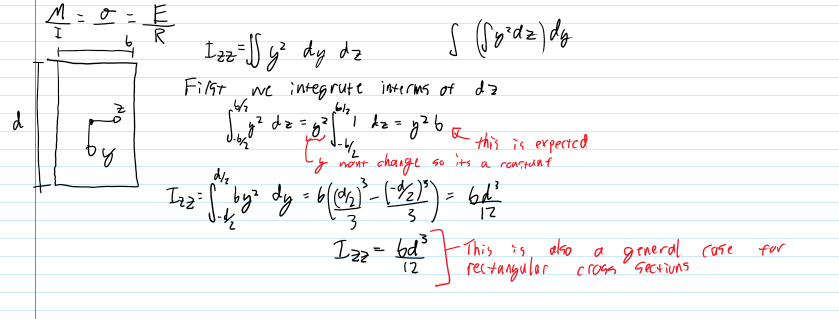 M/I = σ = E/R
b
d
z
y
I_zz = ∬ y² dy dz
∫ (∫ y² dz) dy
First we integrate interms of dz
∫_{-b/2}^{b/2} y² dz = y² ∫_{-b/2}^{b/2} 1 dz = y² b
this is expected
y wont change so its a constant
I_zz = ∫_{-d/2}^{d/2} by² dy = b((d/2)³/3 - (-d/2)³/3) = bd³/12
I_zz = bd³/12
This is also a general case for
rectangular cross sections